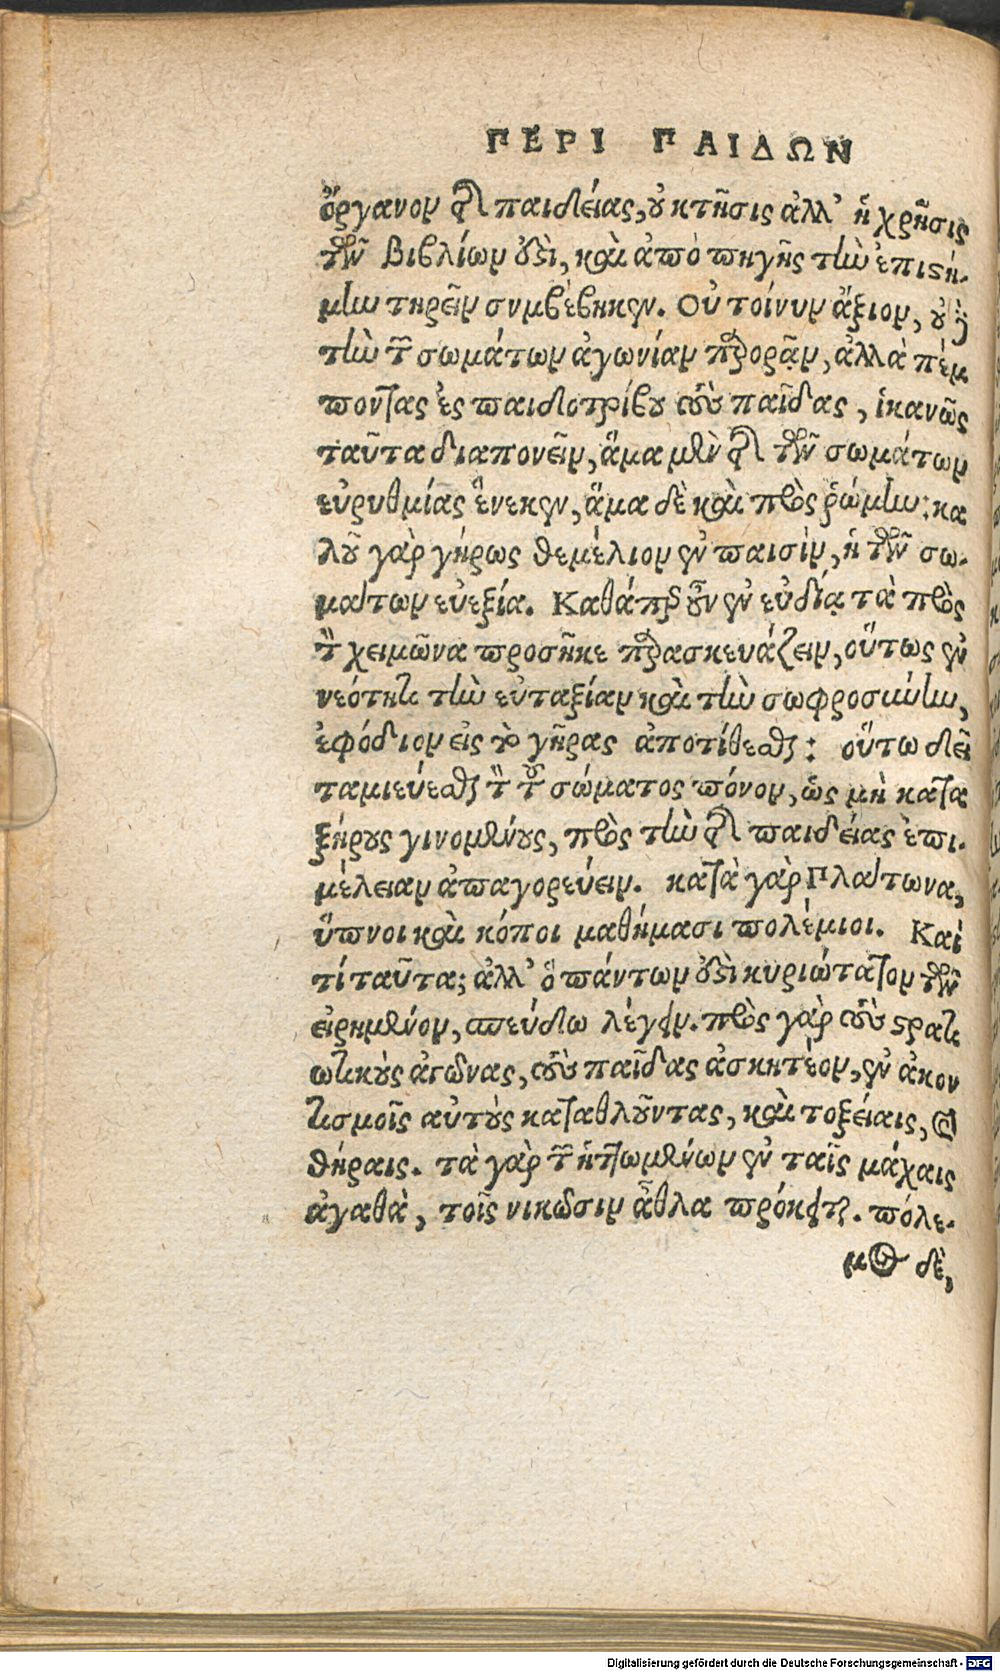 ΠΕΡΙ ΠΑΙΔΩΝ
ὄργανον τῆς παιδείας, ȣ κτῆσις ἀλλ' ἡ χρῆσις
τῶν βιβλίων ȣ̓δὲ, καὶ ἀπὸ πηγῆς τὴν ἐπιϛή-
μην τηρεῖν συμβέβηκεν. Οὐ τοίνυν ἄξιον, ȣ̓δὲ
τὴν τῶν σωμάτων ἀγωνίαν παρορᾷν, ἀλλὰ πέμ
ποντας ἐς παιδοτρίβȣ τοὺς παῖδας, ἱκανῶς
ταῦτα διαπονεῖν, ἅμα μὲν τῆς τῶν σωμάτων
εὐρυθμίας ἕνεκεν, ἅμα δὲ καὶ πρὸς ῥώμην: κα
λȣ͂ γὰρ γήρως θεμέλιον ἐν παισὶν, ἡ τῶν σω-
μάτων εὐεξία. Καθάπερ οὖν ἐν εὐδίᾳ τὰ πρὸς
τὸν χειμῶνα προσῆκε παρασκευάζειν, οὕτως ἐν
νεότητι τὴν εὐταξίαν καὶ τὴν σωφροσύνην,
ἐφόδιον εἰς τὸ γῆρας ἀποτίθεσθαι: οὕτω δεῖ
ταμιεύεσθαι τὸν τοῦ σώματος πόνον, ὡς μὴ κατα
ξήρȣς γινομένȣς, πρὸς τὴν τῆς παιδείας ἐπι-
μέλειαν ἀπαγορεύειν. κατὰ γὰρ Πλάτωνα,
ὕπνοι καὶ κόποι μαθήμασι πολέμιοι. Καὶ
τί ταῦτα; ἀλλ' ὃ πάντων ȣ̓δὲ κυριώτατον τῶν
εἰρημένον, σπεύδω λέγειν. πρὸς γὰρ τοὺς ϛρατι
ωτικȣ̀ς ἀγῶνας, τοὺς παῖδας ἀσκητέον, ἐν ἀκον
τισμοῖς αὐτȣ̀ς καταθλȣ͂ντας, καὶ τοξείαις, καὶ
θήραις. τὰ γὰρ τῶν ἡττωμένων ἐν ταῖς μάχαις
ἀγαθὰ, τοῖς νικῶσιν ἆθλα πρόκειται. πόλε-
μος δὲ,
Digitalisierung gefördert durch die Deutsche Forschungsgemeinschaft - DFG